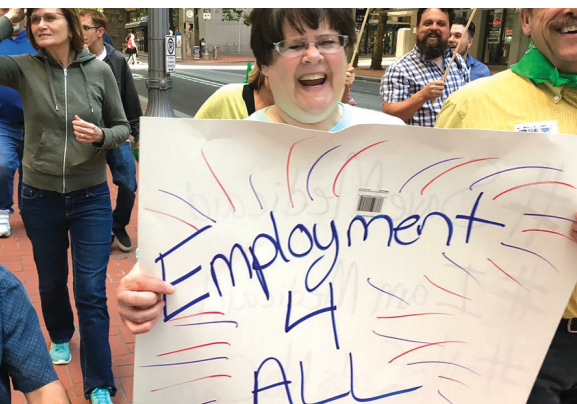 Employment
4
ALL